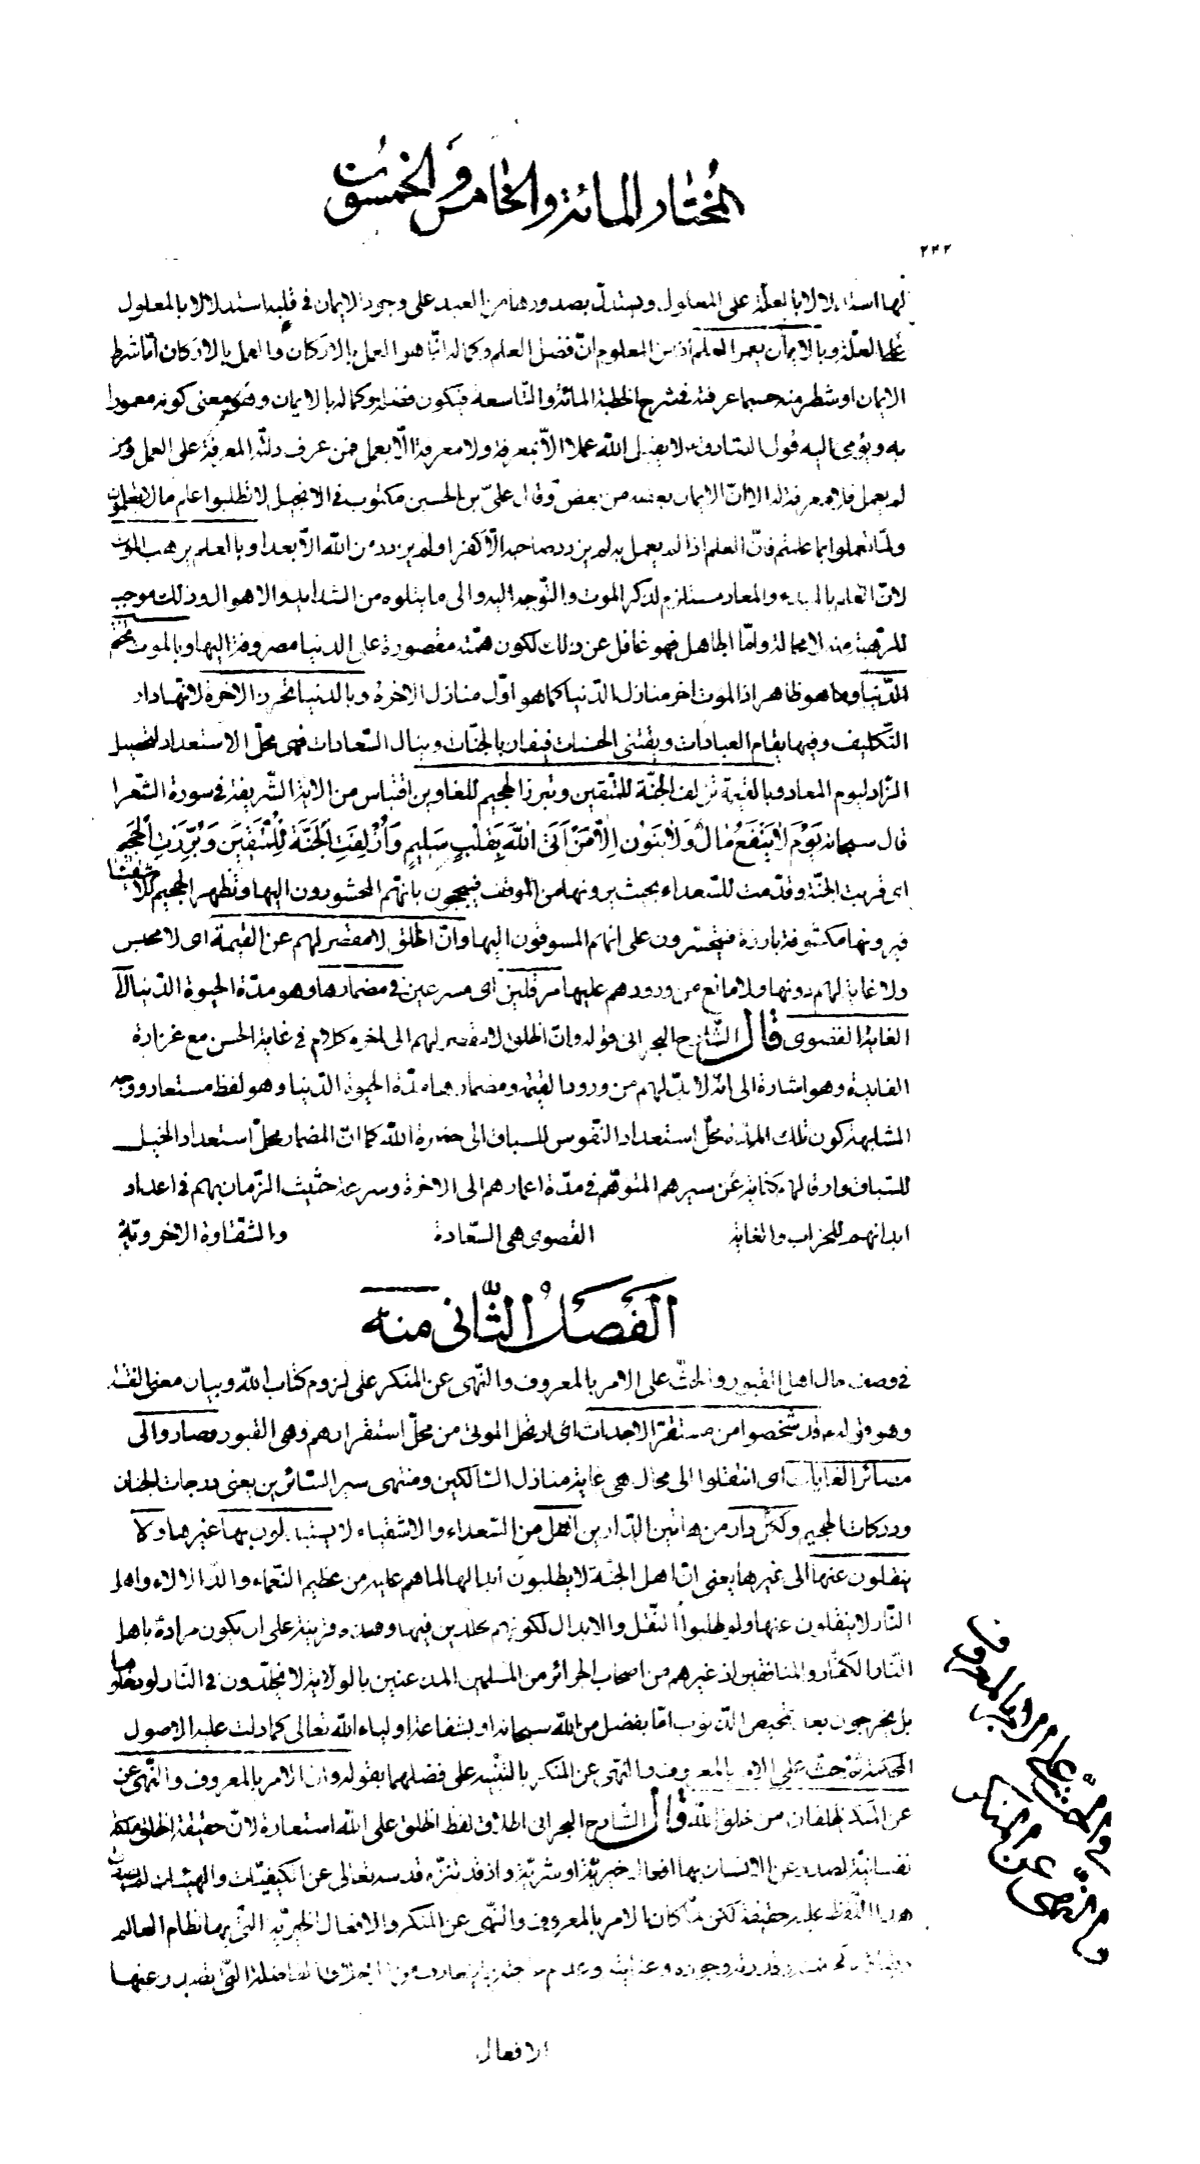 المختار المائة والخامس والخمسون
٢٣٢
لها استدلالا بالعلّة على المعلول ويستدلّ بصدورها من العبد على وجود الايمان في قلبه استدلالا بالمعلول
على العلّة وبالايمان يعمر العلم اذ من المعلوم انّ فضل العلم وكماله انّما هو العمل بالاركان والعمل بالاركان امّا شرط
الايمان او شطر منه حسبما عرفته في شرح الخطبة المائة والتّاسعة فيكون فضله وكماله بالايمان وهو معنى كونه معمورا
به ويؤمى اليه قول الصّادق لا يقبل الله عملا الّا بمعرفة ولا معرفة الّا بعمل فمن عرف دلّته المعرفة على العمل ومن
لم يعمل فلا معرفة له الا انّ الايمان بعضه من بعض وقال علىّ بن الحسين مكتوب في الانجيل لا تطلبوا علم ما لا تعلمون
ولمّا تعملوا بما علمتم فانّ العلم اذا لم يعمل به لم يزدد صاحبه الّا كفرا ولم يزدد من الله الّا بعدا وبالعلم يرهب الموت
لانّ العلم بالمبدء والمعاد مستلزم لذكر الموت والتّوجه اليه والى ما يتلوه من الشدايد والاهوال وذلك موجب
للرّهبة منه لا محالة وامّا الجاهل فهو غافل عن ذلك لكون همّته مقصورة على الدنيا مصروفة اليها وبالموت تختم
الدّنيا وهو ظاهر اذ الموت اخر منازل الدّنيا كما هو اوّل منازل الاخرة وبالدنيا تحرز الاخرة لانّها دار
التّكليف وفيها يقام العبادات ويقتنى الحسنات فيفاز بالجنّات وينال السّعادات فهى محلّ الاستعداد لتحصيل
الزّاد ليوم المعاد وبالقيمة تزلف الجنّة للمتّقين وتبرز الجحيم للغاوين اقتباس من الاية الشّريفة في سورة الشّعرا
قال سبحانه يَوْمَ لا يَنْفَعُ مالٌ وَلا بَنُونَ اِلاّ مَنْ اَتَى اللهَ بِقَلْبٍ سَليمٍ وَاُزْلِفَتِ الْجَنَّةُ لِلْمُتَّقينَ وَبُرِّزَتِ الْجَحيمُ
اى قربت الجنّة وقدّمت للسّعداء بحيث يرونها من الموقف فيبجحون بانّهم المحشورون اليها وتظهر الجحيم للاشقياء
فيرونها مكشوفة بارزة فيتحسّرون على انّهم المسوقون اليها وانّ الخلق لا مقصر لهم عن القيمة اى لا محبس
ولا غاية لهم دونها ولا مانع من ورودهم عليها مرقلين اى مسرعين في مضمارها وهو مدّة الحيوة الدّنيا الى
الغاية القصوى قال الشّارح البحرانى قوله وانّ الخلق لا مقصر لهم الى اخره كلام في غاية الحسن مع غزارة
الفايدة وهو اشارة الى انّه لا بدّ لهم من ورود القيمة ومضمارها مدّة الحيوة الدّنيا وهو لفظ مستعار ووجه
المشابهة كون تلك المدّة محلّ استعداد النّفوس للسباق الى حضرة الله كما انّ المضمار محلّ استعداد الخيل
للسّباق وارقالهم كناية عن سيرهم المتوهّم في مدّة اعمارهم الى الاخرة وسرعة حثيث الزّمان بهم في اعداد
ابدانهم للخراب والغاية القصوى هى السّعادة والشّقاوة الاخرويّة
الفصل الثّانى منه
في وصف حال اهل القبور والحثّ على الامر بالمعروف والنّهى عن المنكر على لزوم كتاب الله وبيان معنى الفتنة
وهو قوله قد شخصوا من مستقرّ الاجداث اى ارتحل الموتى من محلّ استقرارهم وهى القبور وصاروا الى
مصائر الغايات اى انتقلوا الى محال هى غاية منازل السّالكين ومنتهى سير السّائرين يعنى درجات الجنان
ودركات الجحيم ولكلّ دار من هاتين الدّارين اهل من السّعداء والاشقياء لا يستبدلون بها غيرها ولا
ينقلون عنها الى غيرها يعنى انّ اهل الجنّة لا يطلبون ابدالها لما هم عليه من عظيم النّعماء والذّ الالاء واهل
النّار لا ينقلون عنها ولو طلبوا النّقل والابدال لكونهم مخلّدين فيها وهذه قرينة على ان يكون مراده باهل
النّار الكفّار والمنافقين اذ غيرهم من اصحاب الجرائر من المسلمين المذعنين بالولاية لا يخلّدون في النّار لو دخلوها
بل يخرجون بعد تمحيص الذّنوب امّا بفضل من الله سبحانه او بشفاعة اولياء الله تعالى كما دلت عليه الاصول
المحكمة ثمّ حثّ على الامر بالمعروف والنّهى عن المنكر بالتّنبيه على فضلهما بقوله وانّ الامر بالمعروف والنّهى عن
عن المنكر لخلقان من خلق الله قال الشّارح البحرانى اطلاق لفظ الخلق على الله استعارة لانّ حقيقة الخلق ملكة
نفسانيّة تصدر عن الانسان بها افعال خيريّة او شرّيّة واذ قد تنزّه قدسه تعالى عن الكيفيّات والهيئات لم يصدق
هذا اللّفظ عليه حقيقة لكن لمّا كان الامر بالمعروف والنّهى عن المنكر والافعال الخيريّة الّتى بها نظام العالم
وقدرته وجوده وعنايته وعدم الاخلاق الفاضلة الّتى تصدر عنها
الافعال
في الحثّ على الامر بالمعروف
والنّهى عن المنكر